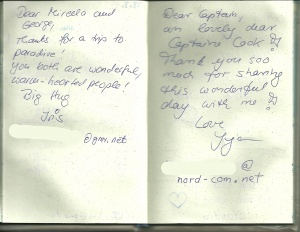 Dear Mircela and
George,
Thanks for a trip to
paradise!
You both are wonderful,
warm-hearted people!
Big Hug
Iris
@gmx.net
Dear Captain,
an lovely dear
Captaine Cook
Thank you soo
much for sharing
this wonderful
day with me
Love
@
nord-com.net